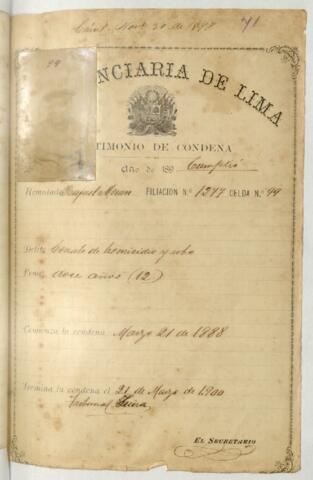 Nov. 30 de 1897 71
99
NCIARIA DE LIMA
TIMONIO DE CONDENA
Año de 189 Cumplió
Rematado Rafael Moran FILIACION N.º 1217 CELDA N.º 99
Delito Conato de homicidio y robo
Pena doce años (12)
Comienza la condena Marzo 21 de 1888
Termina la condena el 21 de Marzo de 1900
Tribunal Piura
EL SECRETARIO